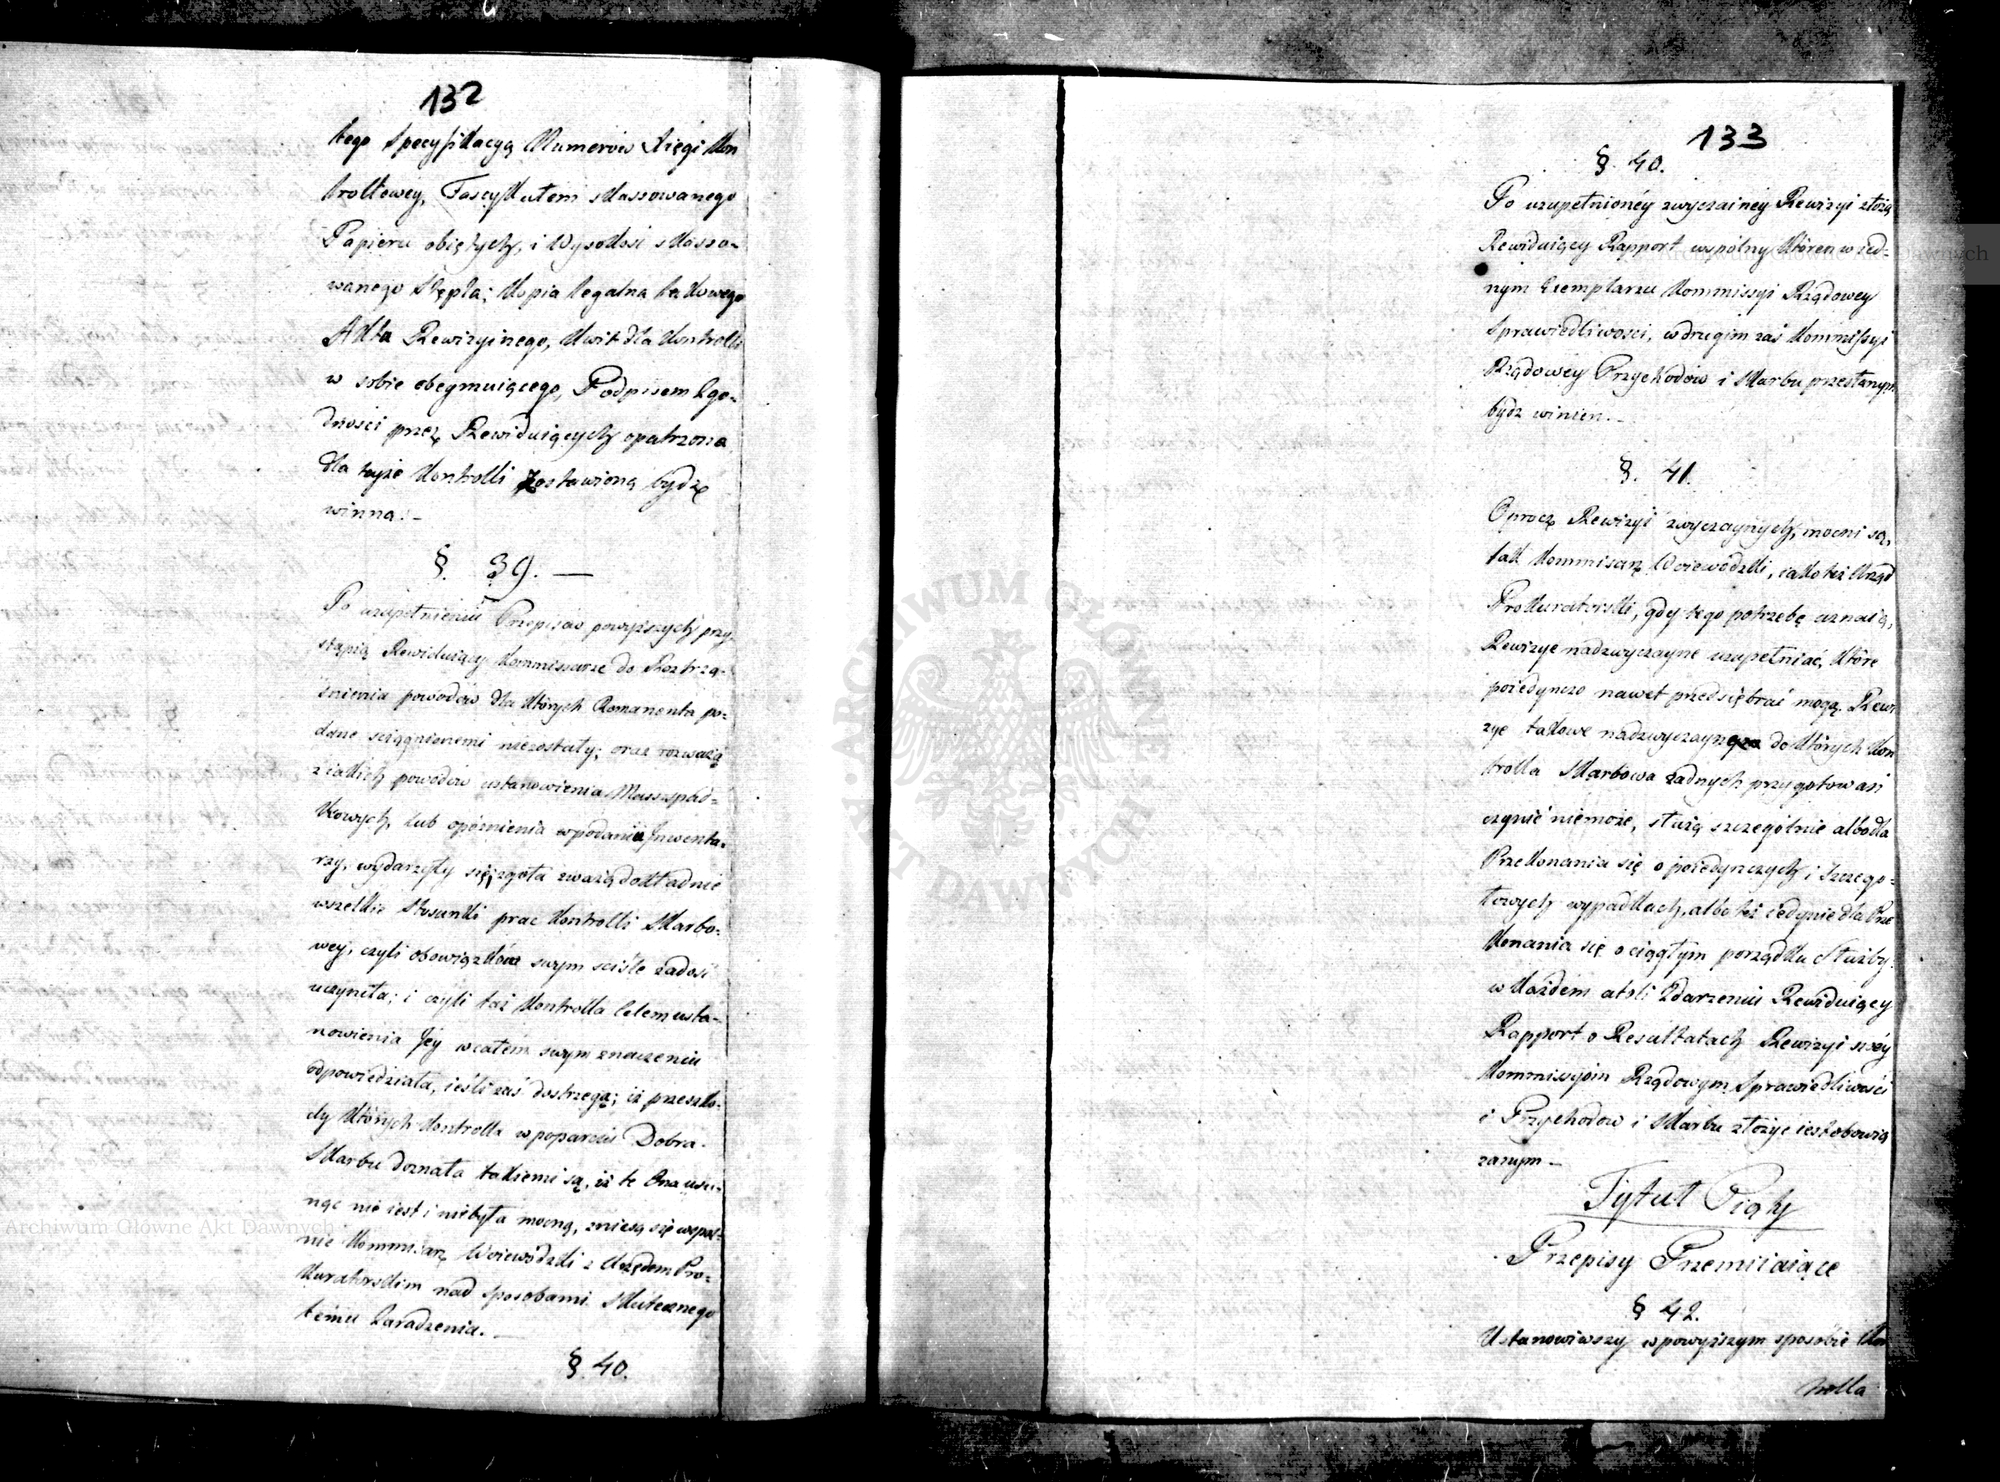 132
tego Specyfikacyą Numerów Xięgi Kon
trollowey, Fascykułem skassowanego
Papieru obiętych, i Wysokosi skasso-
wanego Stępla; Kopia legalna takowego
Akta Rewizyinego, Kwit dla Kontrolli
w sobie obeymuiącego, Podpisem Zgo-
dności przez Rewiduiących opatrzona
dla teyże Kontrolli zostawioną bydz
winna. -
§. 39. —
Po uzupełnieniu Przepisow powyższych przy-
stąpią Rewiduiący Kommissarze do Roztrzą-
śnienia powodów dla których Remanenta po-
dane sciągnionemi niezostały; oraz rozważą
z iakich powodów ustanowienia Mass spad-
kowych, lub opóznienia w podaniu Inwenta-
rzy, wydarzyły się; zgoła zważą dokładnie
wszelkie Stosunki prac Kontrolli Skarbo-
wey, czyli obowiązkóm swym sciśle zadosi
uczyniła; i czyli taż Kontrolla Celem usta-
nowienia Jey w całém swym znaczeniu
odpowiedziała, ieśli zaś dostrzegą; iż przeszko-
dy których Kontrolla w poparciu Dobra
Skarbu doznała takiemi są, iż te Ona usu-
nąc nie iest i niebyła mocną, zniesą się wspol-
nie Kommisarz Woiewodzki z Urzędem Pro-
kuratorskim nad sposobami Skutecznego
temu Zaradzenia. —
§. 40.
133
§. 40.
Po uzupełnionéy zwyczainéy Rewizyi złożą
Rewiduiący Rapport wspólny, któren w ied-
nym Exemplarzu Kommissyi Rządowey
Sprawiedliwosci, w drugim zaś Kommissyi
Rządowey Przychodów i Skarbu przesłanym
bydz winien. -
§. 41.
Oprocz Rewizyi zwyczaynych, mocni są,
tak Kommisarz Woiewodzki, iako też Urząd
Prokuratorski, gdy tego potrzebę uznaią,
Rewizye nadzwyczayne uzupełniać, które
poiedynczo nawet przedsiębrać mogą. Rewi
zye takowe nadzwyczayne do których Kon
trolla Skarbowa żadnych przygotowań
czynić niemoże, służą szczególnie albo dla
Przekonania się o poiedynczych i Szczego-
łowych wypadkach, albo też iedynie dla Prze
konania się o ciągłym porządku Służby.
w każdem atoli Zdarzeniu Rewiduiący
Rapport o Resultatach Rewizyi swéy
Kommissyom Rządowym Sprawiedliwości
i Przychodow i Skarbu złożyc iest obowią
zanym -
Tytuł Piąty
Przepisy Przemiiaiące
§ 42.
Ustanowiwszy w powyższym sposobie Kon
trolla